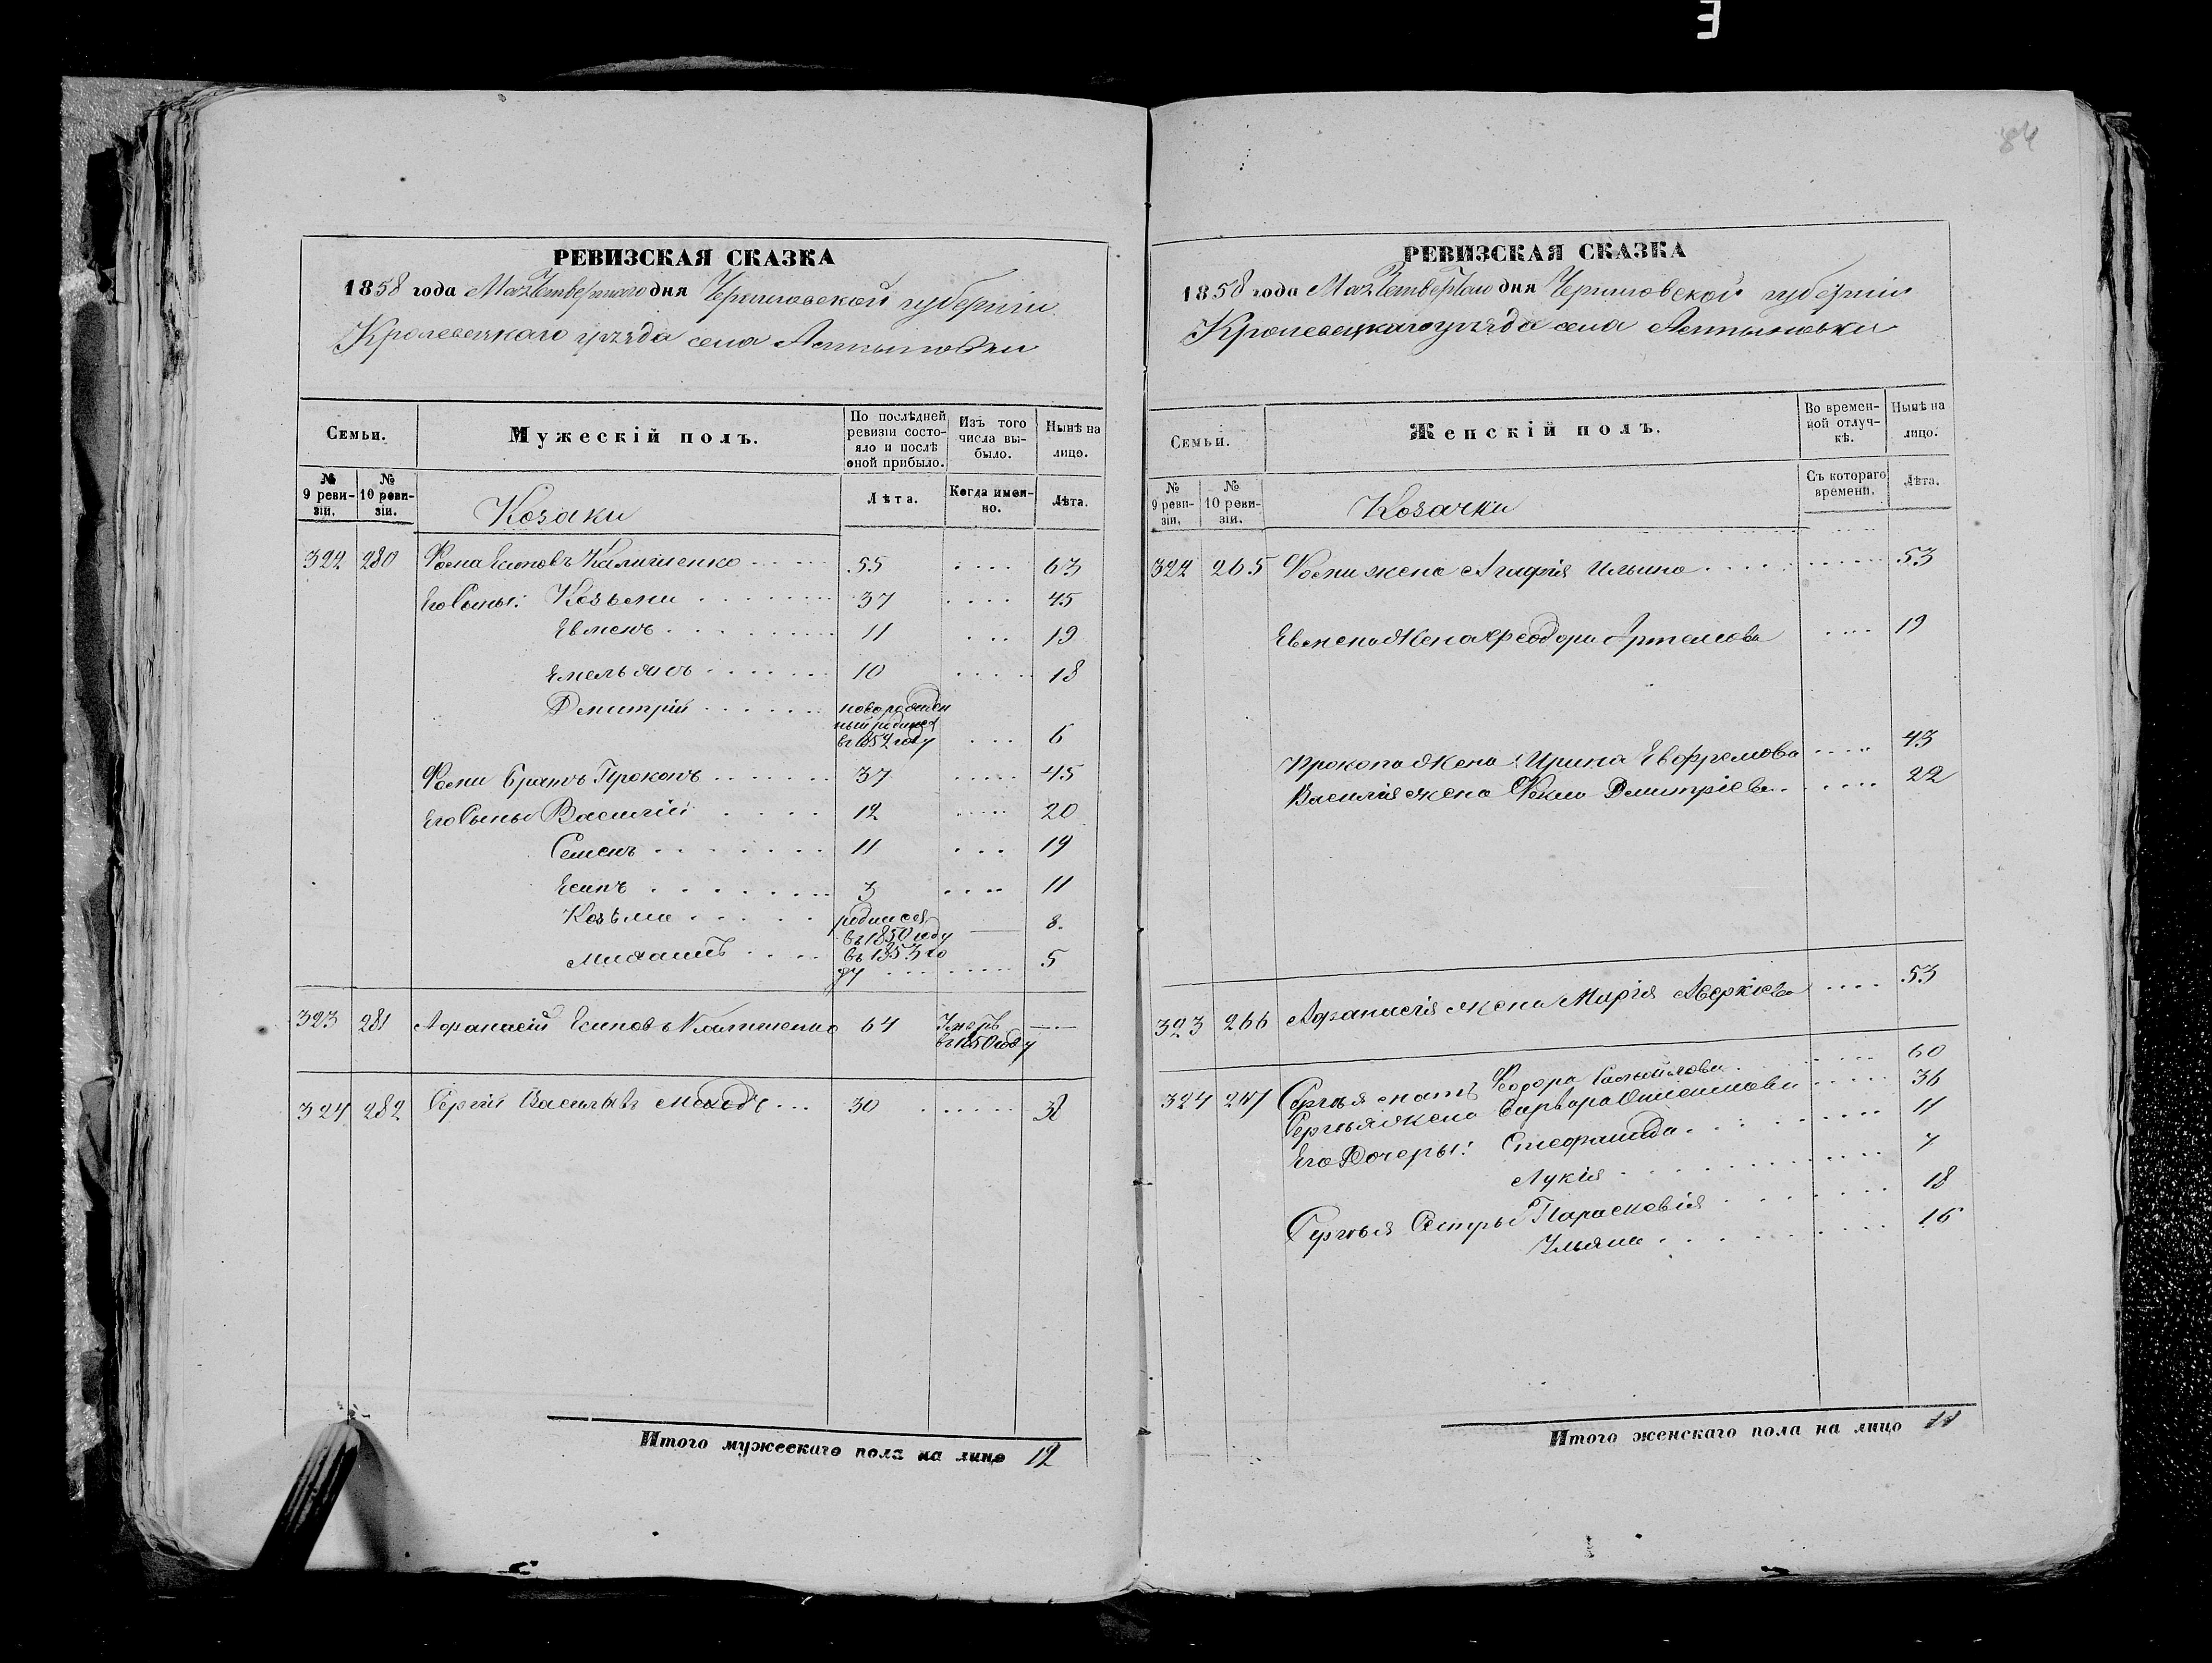 E
84
РЕВИЗСКАЯ СКАЗКА
1858 года Мая Четвертого дня Черниговской губерніи
Кролевецкаго уѣзда села Алтыновки
Семьи.
Мужескій полъ.
По послѣдней ревизіи состояло и послѣ оной прибыло.
Изъ того числа выбыло.
Нынѣ на лицо.
№ 9 ревизіи.
№ 10 ревизіи.
Козаки
Лѣта.
Когда именно.
Лѣта.
322 280 Фома Есиповъ Калишенко 55 63
Его Сыны: Козьма 37 45
Евменъ 11 19
Емельянъ 10 18
Дмитрій новорожден
ный родился
въ 1852 году 6
Фомы братъ Прокопъ 37 45
Его Сыны Василій 12 20
Семенъ 11 19
Есипъ 3 11
Козьма родился
въ 1850 году 8.
Михаилъ въ 1853 го
ду 5
323 281 Афанасій Есиповъ Калишенко 64 Умеръ
въ 1850 году
324 282 Сергій Васильевъ 30 38
Итого мужескаго пола на лицо 12
РЕВИЗСКАЯ СКАЗКА
1858 года Мая Четвертого дня Черниговской губерніи
Кролевецкаго уѣзда села Алтыновки
Семьи.
Женскій полъ.
Во временной отлучкѣ.
Нынѣ на лицо.
№ 9 ревизіи.
№ 10 ревизіи.
Козачки
Съ котораго времени.
Лѣта.
322 265 Фомы жена Агафія Ильина 53
Евмена Жена Феодора Артемова 19
Прокопа Жена Ирина Евфремова 43
Василія жена Фекла Дмитріева 22
323 266 Афанасія жена Марія Аверкіева 53
324 267 Сергья мать Феодора Самойлова 60
Сергья Жена Варвара 36
Его Дочеры: Стефанида 11
Лукія 7
Сергья Сестры Парасковія 18
Ульяна 16
Итого женскаго пола на лицо 11